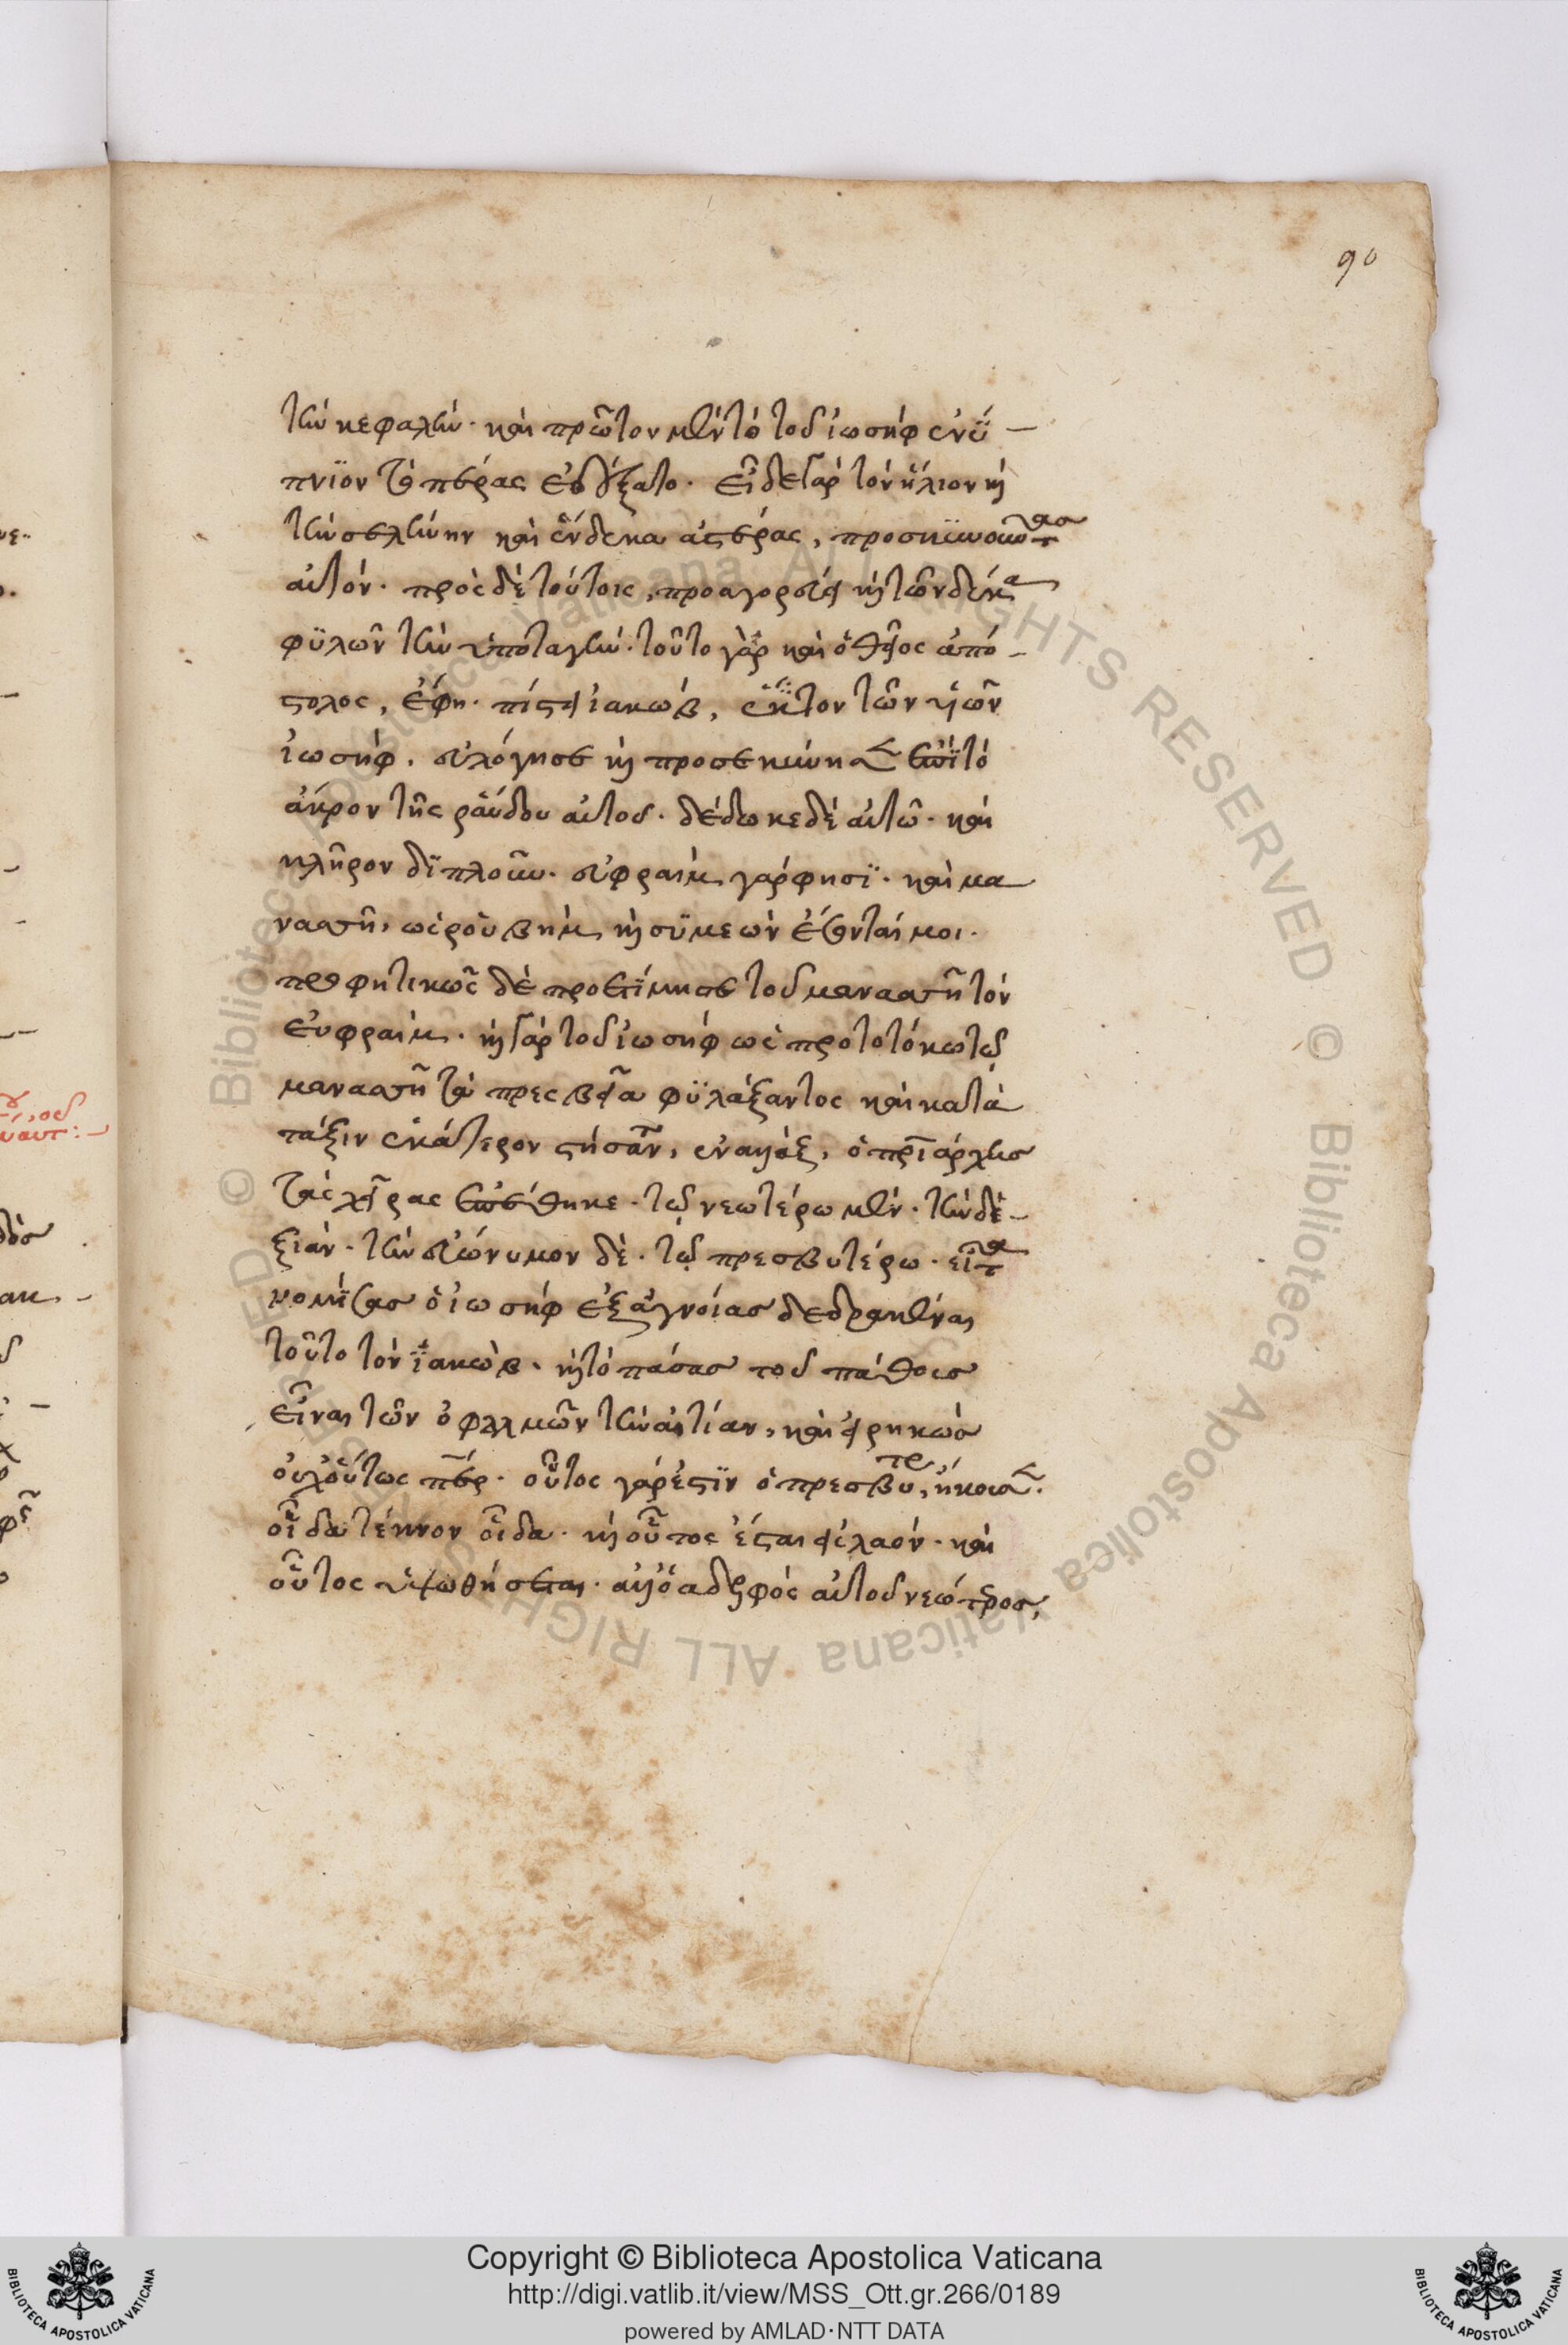 90
τὴν κεφαλὴν· καὶ πρῶτον μὲν τὸ τοῦ ἰωσὴφ ἐνύ
πνϊον τὸ πέρας ἐδέξατο· εἶδε γὰρ τὸν ἥλιον καὶ
τὴν σελήνην καὶ ἕνδεκα ἀστέρας, προσκϋνοῦντας
αὐτόν· πρὸς δὲ τούτοις, προαγορεύει καὶ τῶν δέκα
φϋλῶν τὴν ὑποταγήν· τοῦτο γὰρ καὶ ὁ θεῖος ἀπό
στολος, ἔφη· πίστει ἰακώβ, ἕκαστον τῶν υἱῶν
ἰωσήφ, εὐλόγησε καὶ προσεκύνησεν ἐπῒ τὸ
ἄκρον τῆς ῥάβδου αὐτοῦ· δέδωκε δὲ αὐτῶ· καὶ
κλῆρον δϊπλοῦν· εὐφραὶμ γάρ φησϊ· καὶ μα
νασσῆ, ὡς ῥουβὴμ καὶ σϋμεὼν ἔσονταί μοι·
προφητικῶς δὲ προετίμησε τοῦ μανασσῆ τὸν
ευφραὶμ· καὶ γὰρ τοῦ ἰωσὴφ ὡς προτοτόκω τῶ
μανασσῆ τὰ πρεσβεῖα φϋλάξαντος καὶ κατὰ
τάξιν ἑκάτερον στήσαντος, ἐναλλὰξ, ὁ πατριάρχης
τὰς χεῖρας ἐπέθηκε· τῶ νεωτέρω μὲν· τὴν δε
ξιάν· τὴν εὐώνυμον δὲ· τῶ πρεσβυτέρω· εἶτα
νομίσας ὁ ἰωσὴφ ἐξ ἀγνοίας δεδρακέναι
τοῦτο τὸν ϊακὼβ· καὶ τὸ πάσας τοῦ πάθους
εἶναι τῶν ὀφθαλμῶν τὴν αἰτίαν, καὶ εἰρηκὼς
οὐχ οὕτως πάτερ· οὗτος γάρ ἐστϊν ὁ πρεσβύτερος, ἤκουσεν·
οἶδα τέκνον οἶδα· καὶ οὗτος ἔσται εἰς λαόν· καὶ
οὗτος ὑψωθήσεται· ἀλλ' ὁ ἀδελφὸς αὐτοῦ νεώτερος,
Copyright © Biblioteca Apostolica Vaticana
http://digi.vatlib.it/view/MSS_Ott.gr.266/0189
powered by AMLAD·NTT DATA